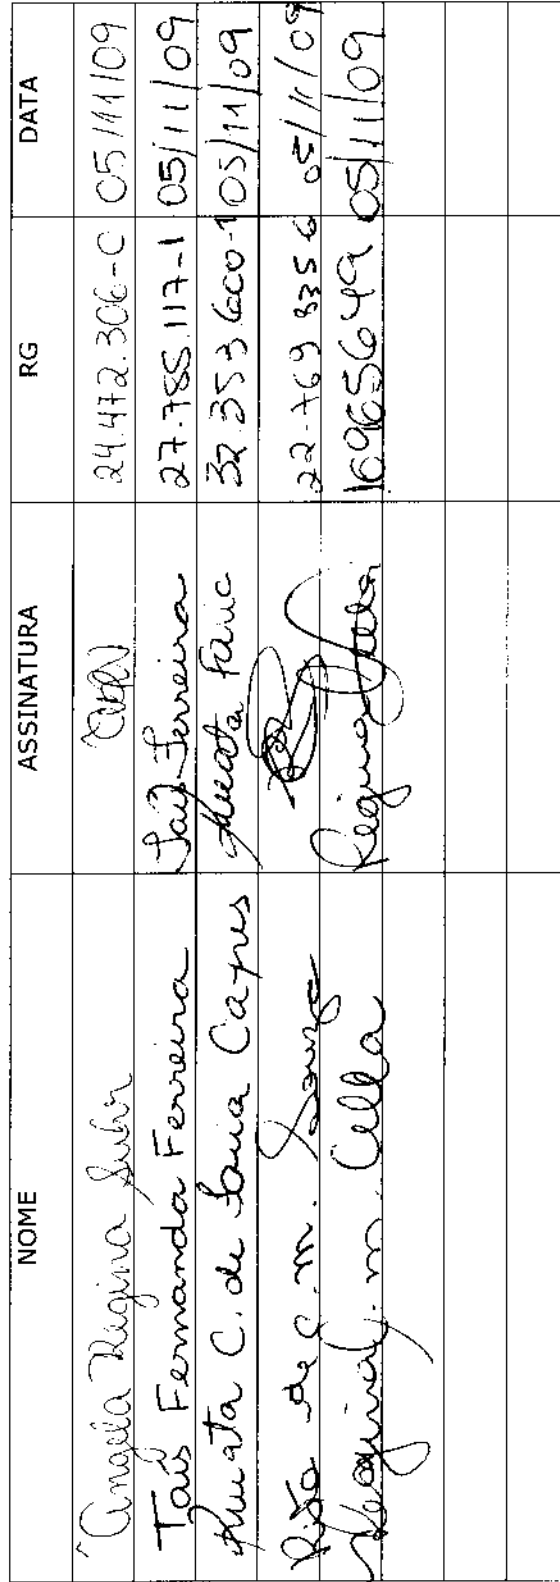 NOME ASSINATURA RG DATA
Angela Regina 24.472.306-0 05/11/09
Taís Fernanda Ferreira Taís Ferreira 27.788.117-1 05/11/09
Renata C. de Faria Cayres Renata Faria 32.353.600-1 05/11/09
Rita de C. M. Souza 22.769 835 6 05/11/09
Regina C. M. Cella Regina Cella 16965649 05/11/09